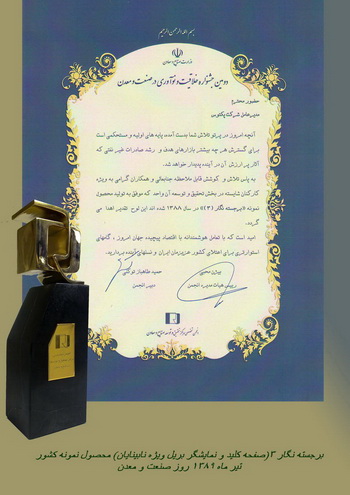 بسم الله الرحمن الرحیم
وزارت صنایع و معادن
دومین جشنواره خلاقیت و نوآوری در صنعت و معدن
حضور محترم
مدیرعامل شرکت پکتوس
آنچه امروز در پرتو تلاش شما بدست آمده پایه های اولیه و مستحکمی است
برای گسترش هر چه بیشتر بازارهای هدف و رشد صادرات غیر نفتی که
آثار پر ارزش آن در آینده پدیدار خواهد شد.
به پاس تلاش و کوشش قابل ملاحظه جنابعالی و همکاران گرامی به ویژه
کارکنان شایسته در بخش تحقیق و توسعه آن واحد که موفق به تولید محصول
نمونه «برجسته نگار (۳)» در سال ۱۳۸۸ شده اند این لوح تقدیر اهدا می
گردد.
امید است که با تعامل هوشمندانه با اقتصاد پیچیده جهان امروز ، گامهای
استوارتری برای اعتلای کشور عزیزمان ایران و نسلهای آینده بردارید.
رییس هیات مدیره انجمن
دبیر انجمن
برجسته نگار ۳ (صفحه کلید و نمایشگر بریل ویژه نابینایان) محصول نمونه کشور
تیر ماه ۱۳۸۹ روز صنعت و معدن